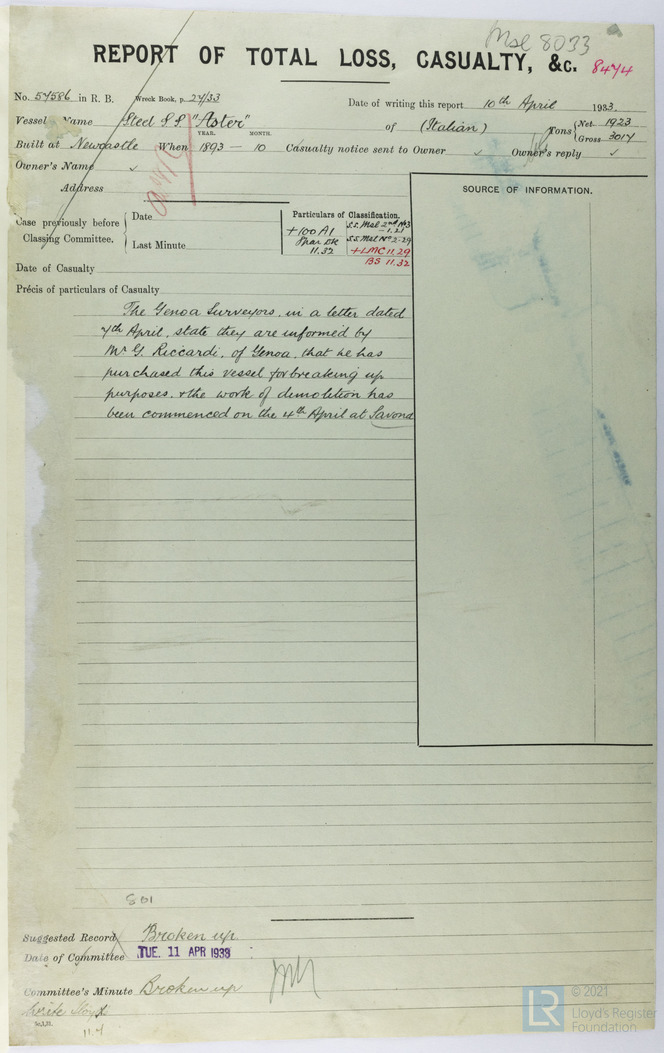 Msl 8033
REPORT OF TOTAL LOSS, CASUALTY, &c. 8474
No. 57586 in R. B. Wreck Book, p. 27/33
Date of writing this report 10th April 1933.
Vessel's Name Steel S.S. "Aster" of (Italian) Tons { Net 1923
YEAR. MONTH. Gross 3017
Built at Newcastle When 1893 - 10 Casualty notice sent to Owner ✓ Owner's reply ✓
Owner's Name ✓
Address
SOURCE OF INFORMATION.
Case previously before Classing Committee. { Date
Last Minute
Particulars of Classification.
+100A1
Spar Dk
11.32
S.S. Msl 2nd No3
-1.21
S.S. Msl No 2-29
+LMC 11.29
BS 11.32
Date of Casualty
Précis of particulars of Casualty
The Genoa Surveyors, in a letter dated
7th April, state they are informed by
Mr G. Riccardi, of Genoa, that he has
purchased this vessel for breaking up
purposes, & the work of demolition has
been commenced on the 4th April at Savona
801
Suggested Record Broken up
Date of Committee TUE. 11 APR 1933
Committee's Minute Broken up
11.4
LR © 2021
Lloyd's Register
Foundation